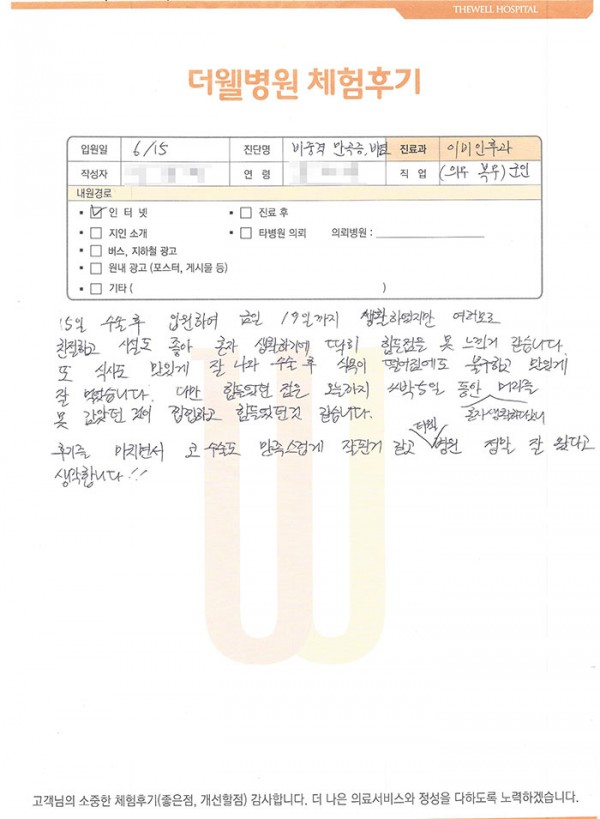 THEWELL HOSPITAL
더웰병원 체험후기
입원일 6/15 진단명 비중격 만곡증, 비염 진료과 이비인후과
작성자 연 령 직 업 (의무 복무) 군인
내원경로
인 터 넷 진료 후
지인 소개 타병원 의뢰 의뢰병원 :
버스, 지하철 광고
원내 광고 (포스터, 게시물 등)
기타 ( )
15일 수술후 입원하여 금일 19일까지 생활하였지만 여러모로
친절하고 시설도 좋아 혼자 생활하기에 딱히 힘든점을 못 느낀거 같습니다.
또 식사도 맛있게 잘 나와 수술 후 식욕이 떨어짐에도 불구하고 맛있게
잘 먹었습니다. 다만 힘들었던 점은 오늘까지 4박5일 동안 머리를
못 감았던 것이 찝찝하고 힘들었던것 같습니다. 혼자 생활하다보니
후기를 마치면서 코 수술도 만족스럽게 잘된거 같고 더웰 병원 정말 잘 왔다고
생각합니다!!!
고객님의 소중한 체험후기(좋은점, 개선할점) 감사합니다. 더 나은 의료서비스와 정성을 다하도록 노력하겠습니다.